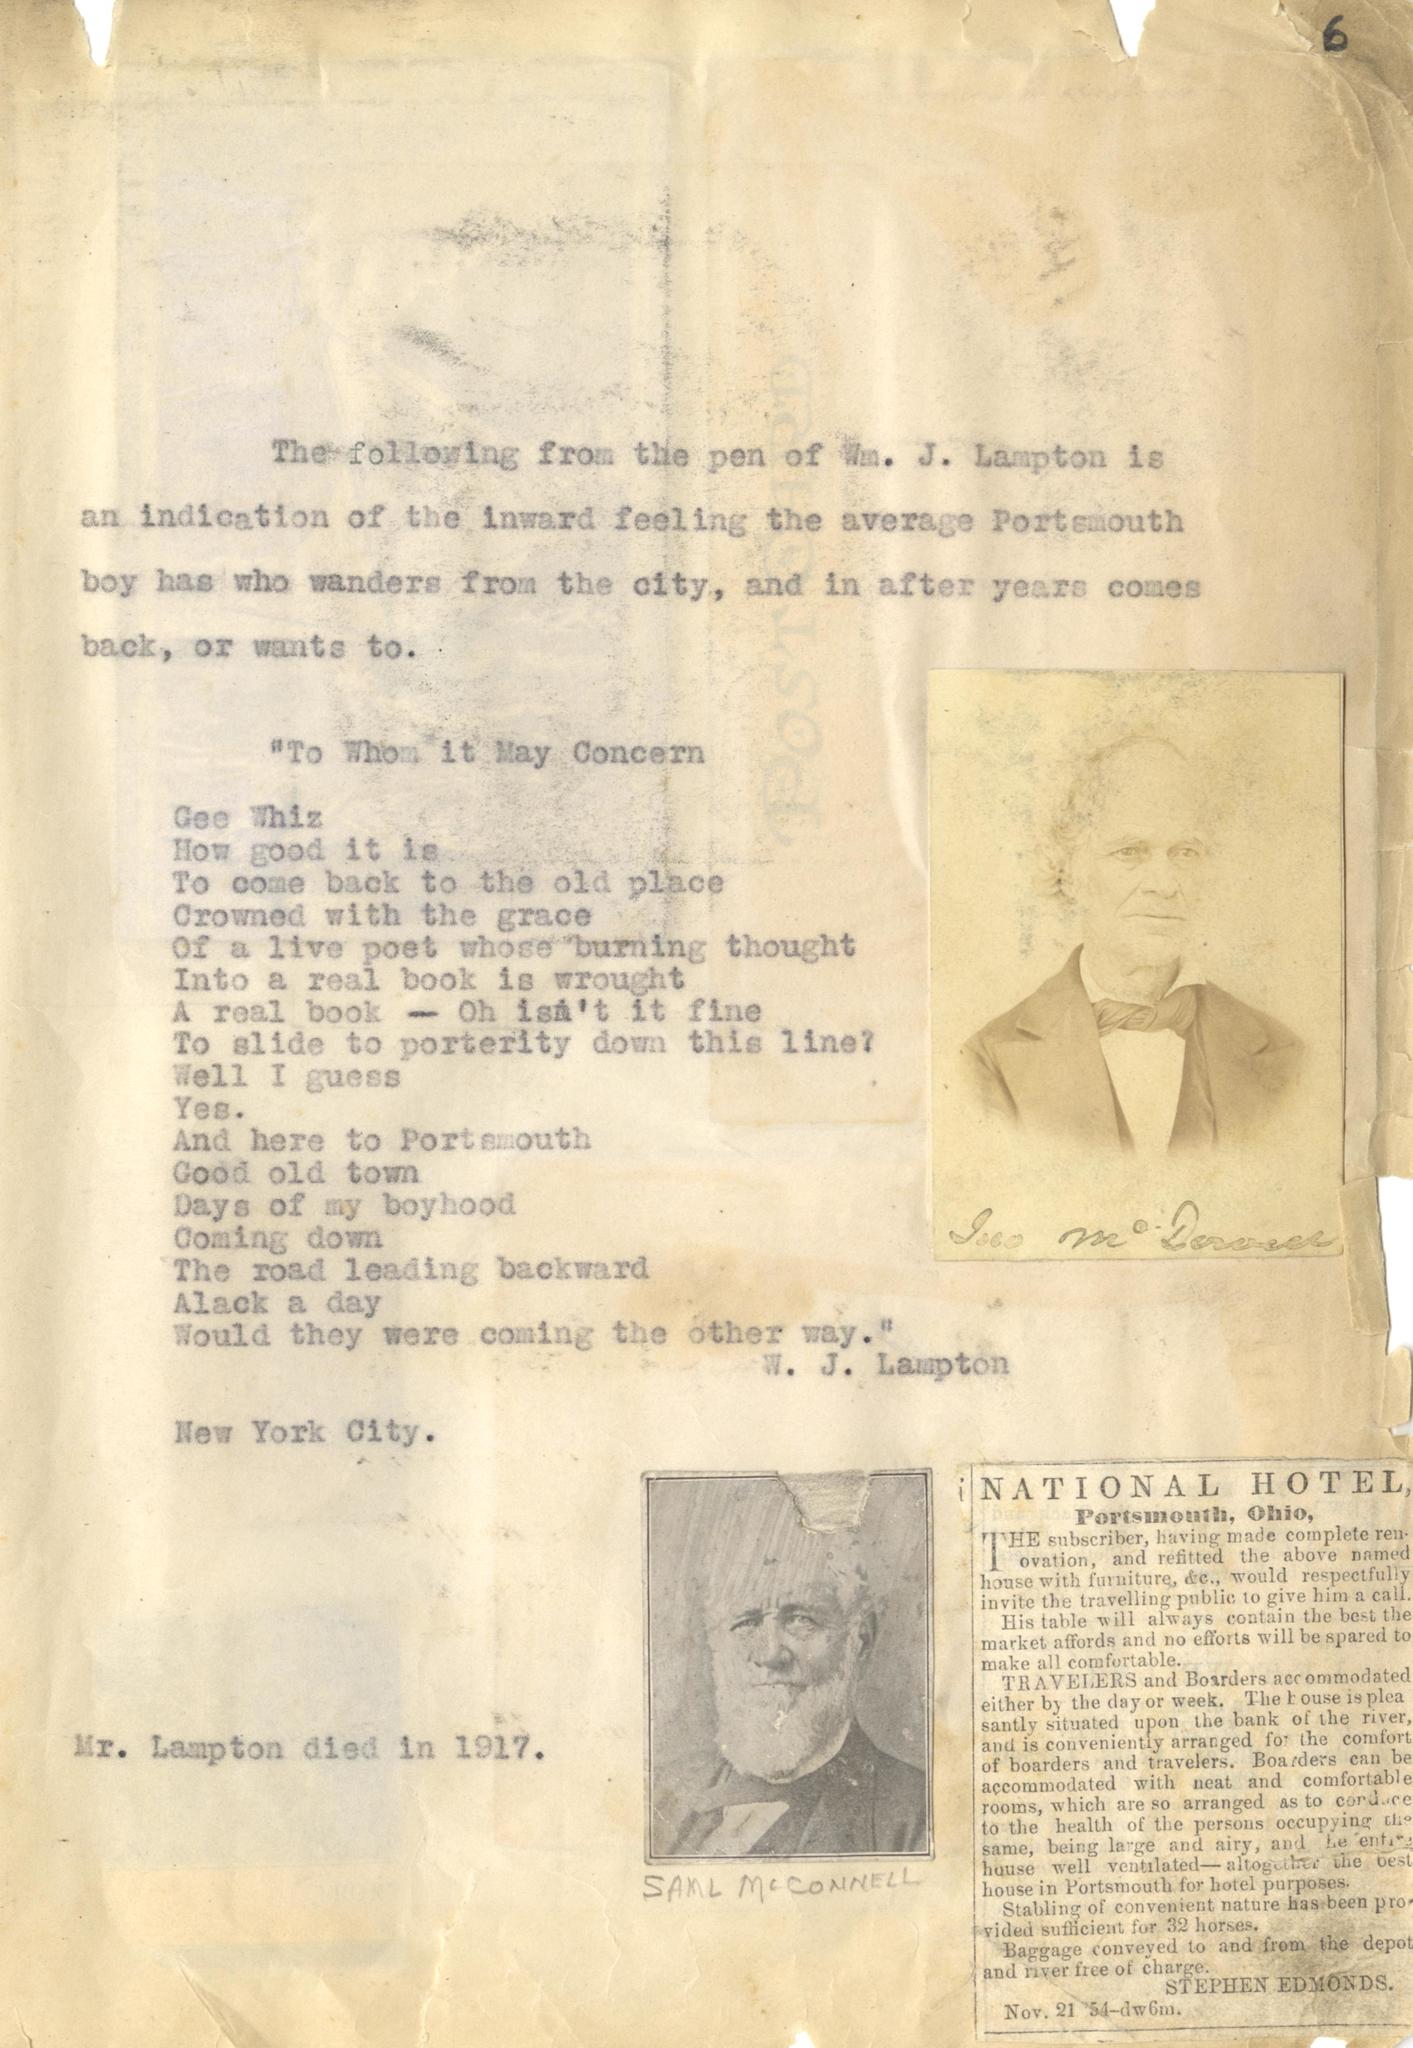 6
The following from the pen of Wm. J. Lampton is
an indication of the inward feeling the average Portsmouth
boy has who wanders from the city, and in after years comes
back, or wants to.
"To Whom it May Concern
Gee Whiz
How good it is
To come back to the old place
Crowned with the grace
Of a live poet whose burning thought
Into a real book is wrought
A real book — Oh isn't it fine
To slide to porterity down this line?
Well I guess
Yes.
And here to Portsmouth
Good old town
Days of my boyhood
Coming down
The road leading backward
Alack a day
Would they were coming the other way."
W. J. Lampton
New York City.
Mr. Lampton died in 1917.
POST CARD
Jno Mc
SAML McCONNELL
NATIONAL HOTEL,
Portsmouth, Ohio,
THE subscriber, having made complete ren-
ovation, and refitted the above named
house with furniture, &c., would respectfully
invite the travelling public to give him a call.
His table will always contain the best the
market affords and no efforts will be spared to
make all comfortable.
TRAVELERS and Boarders accommodated
either by the day or week. The house is plea
santly situated upon the bank of the river,
and is conveniently arranged for the comfort
of boarders and travelers. Boarders can be
accommodated with neat and comfortable
rooms, which are so arranged as to conduce
to the health of the persons occupying the
same, being large and airy, and he entire
house well ventilated—altogether the best
house in Portsmouth for hotel purposes.
Stabling of convenient nature has been pro-
vided sufficient for 32 horses.
Baggage conveyed to and from the depot
and river free of charge.
STEPHEN EDMONDS.
Nov. 21 '54-dw6m.